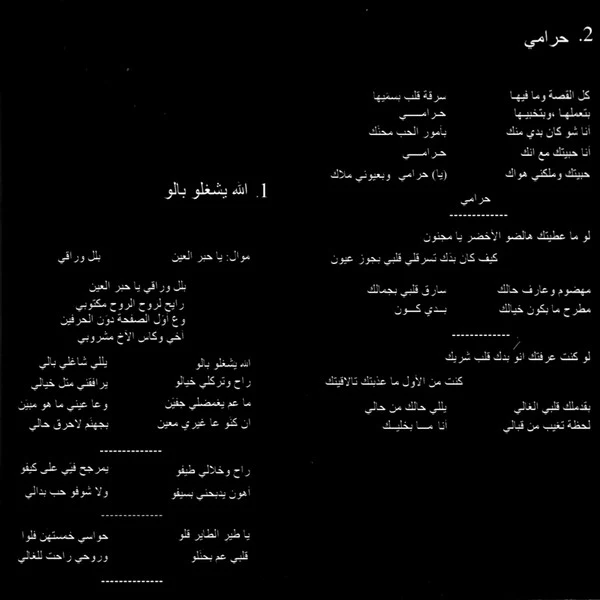 1. الله يشغلو بالو
موال: يا حبر العين بلل وراقي
بلل وراقي يا حبر العين
رايح لروح الروح مكتوبي
وع اول الصفحة دون الحرفين
أخي وكاس الاخ مشروبي
الله يشغلو بالو يللي شاغلي بالي
راح وتركلي خيالو يرافقني متل خيالي
ما عم يغمضلي جفين وعا عيني ما هو مبين
ان كنو عا غيري معين بجهنم لاحرق حالي
--------------
راح وخلالي طيفو يمرجح فيي على كيفو
أهون يدبحني بسيفو ولا شوفو حب بدالي
--------------
يا طير الطاير قلو حواسي خمستهن فلوا
قلبي عم بحنلو وروحي راحت للغالي
--------------
2. حرامي
كل القصة وما فيها سرقة قلب بسميها
بتعملها ،وبتخبيها حرامـــي
أنا شو كان بدي منك بأمور الحب محنك
أنا حبيتك مع انك حرامـــي
حبيتك وملكني هواك (يا) حرامي وبعيوني ملاك
حرامي
-------------
لو ما عطيتك هالضو الأخضر يا مجنون
كيف كان بدك تسرقلي قلبي بجوز عيون
مهضوم وعارف حالك سارق قلبي بجمالك
مطرح ما بكون خيالك بـدي كـــون
-------------
لو كنت عرفتك انو بدك قلب شريك
كنت من الأول ما عذبتك تالاقيتك
بقدملك قلبي الغالي يللي حالك من حالي
لحظة تغيب من قبالي أنا مـــا بخليـك